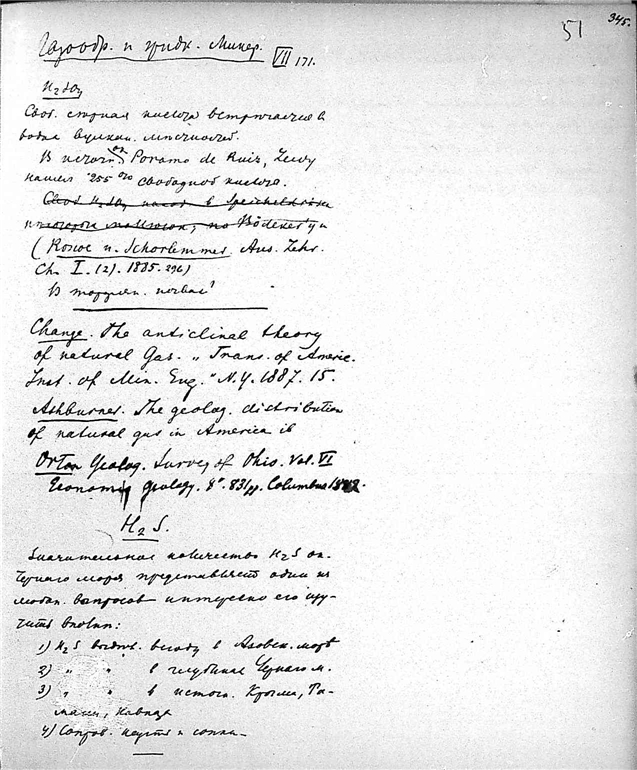 51
345.
Газообр. и жидк. Минер. VII 171.
H2SO4
Своб. серная кислота встречается в
водах вулкан. местностей.
В источн. Paramo de Ruiz, Lewy
нашел 255 % свободной кислоты.
Своб. H2SO4
(Roscoe u. Schorlemmer Aus. Lehr.
Ch. I. (2). 1885. 296)
В торфян. почвах
Change. The anticlinal theory
of natural Gas. „Trans. of Americ.
Inst. of Min. Eng." N.Y. 1887. 15.
Ashburner. The geolog. distribution
of natural gas in America ib
Orton Geolog. Survey of Ohio. Vol. VI
Economic geology. 8°. 831 pp. Columbus
H2S.
Значительное количество H2S
Чернаго моря представляет один из
вопросов интересно его изу-
чить
1) H2S в Азовск. море
2) „ „ в глубинах Чернаго м.
3) „ „ в источ. Крыма, Та-
мани, Кавказа
4) Сопров. нефти и сопки